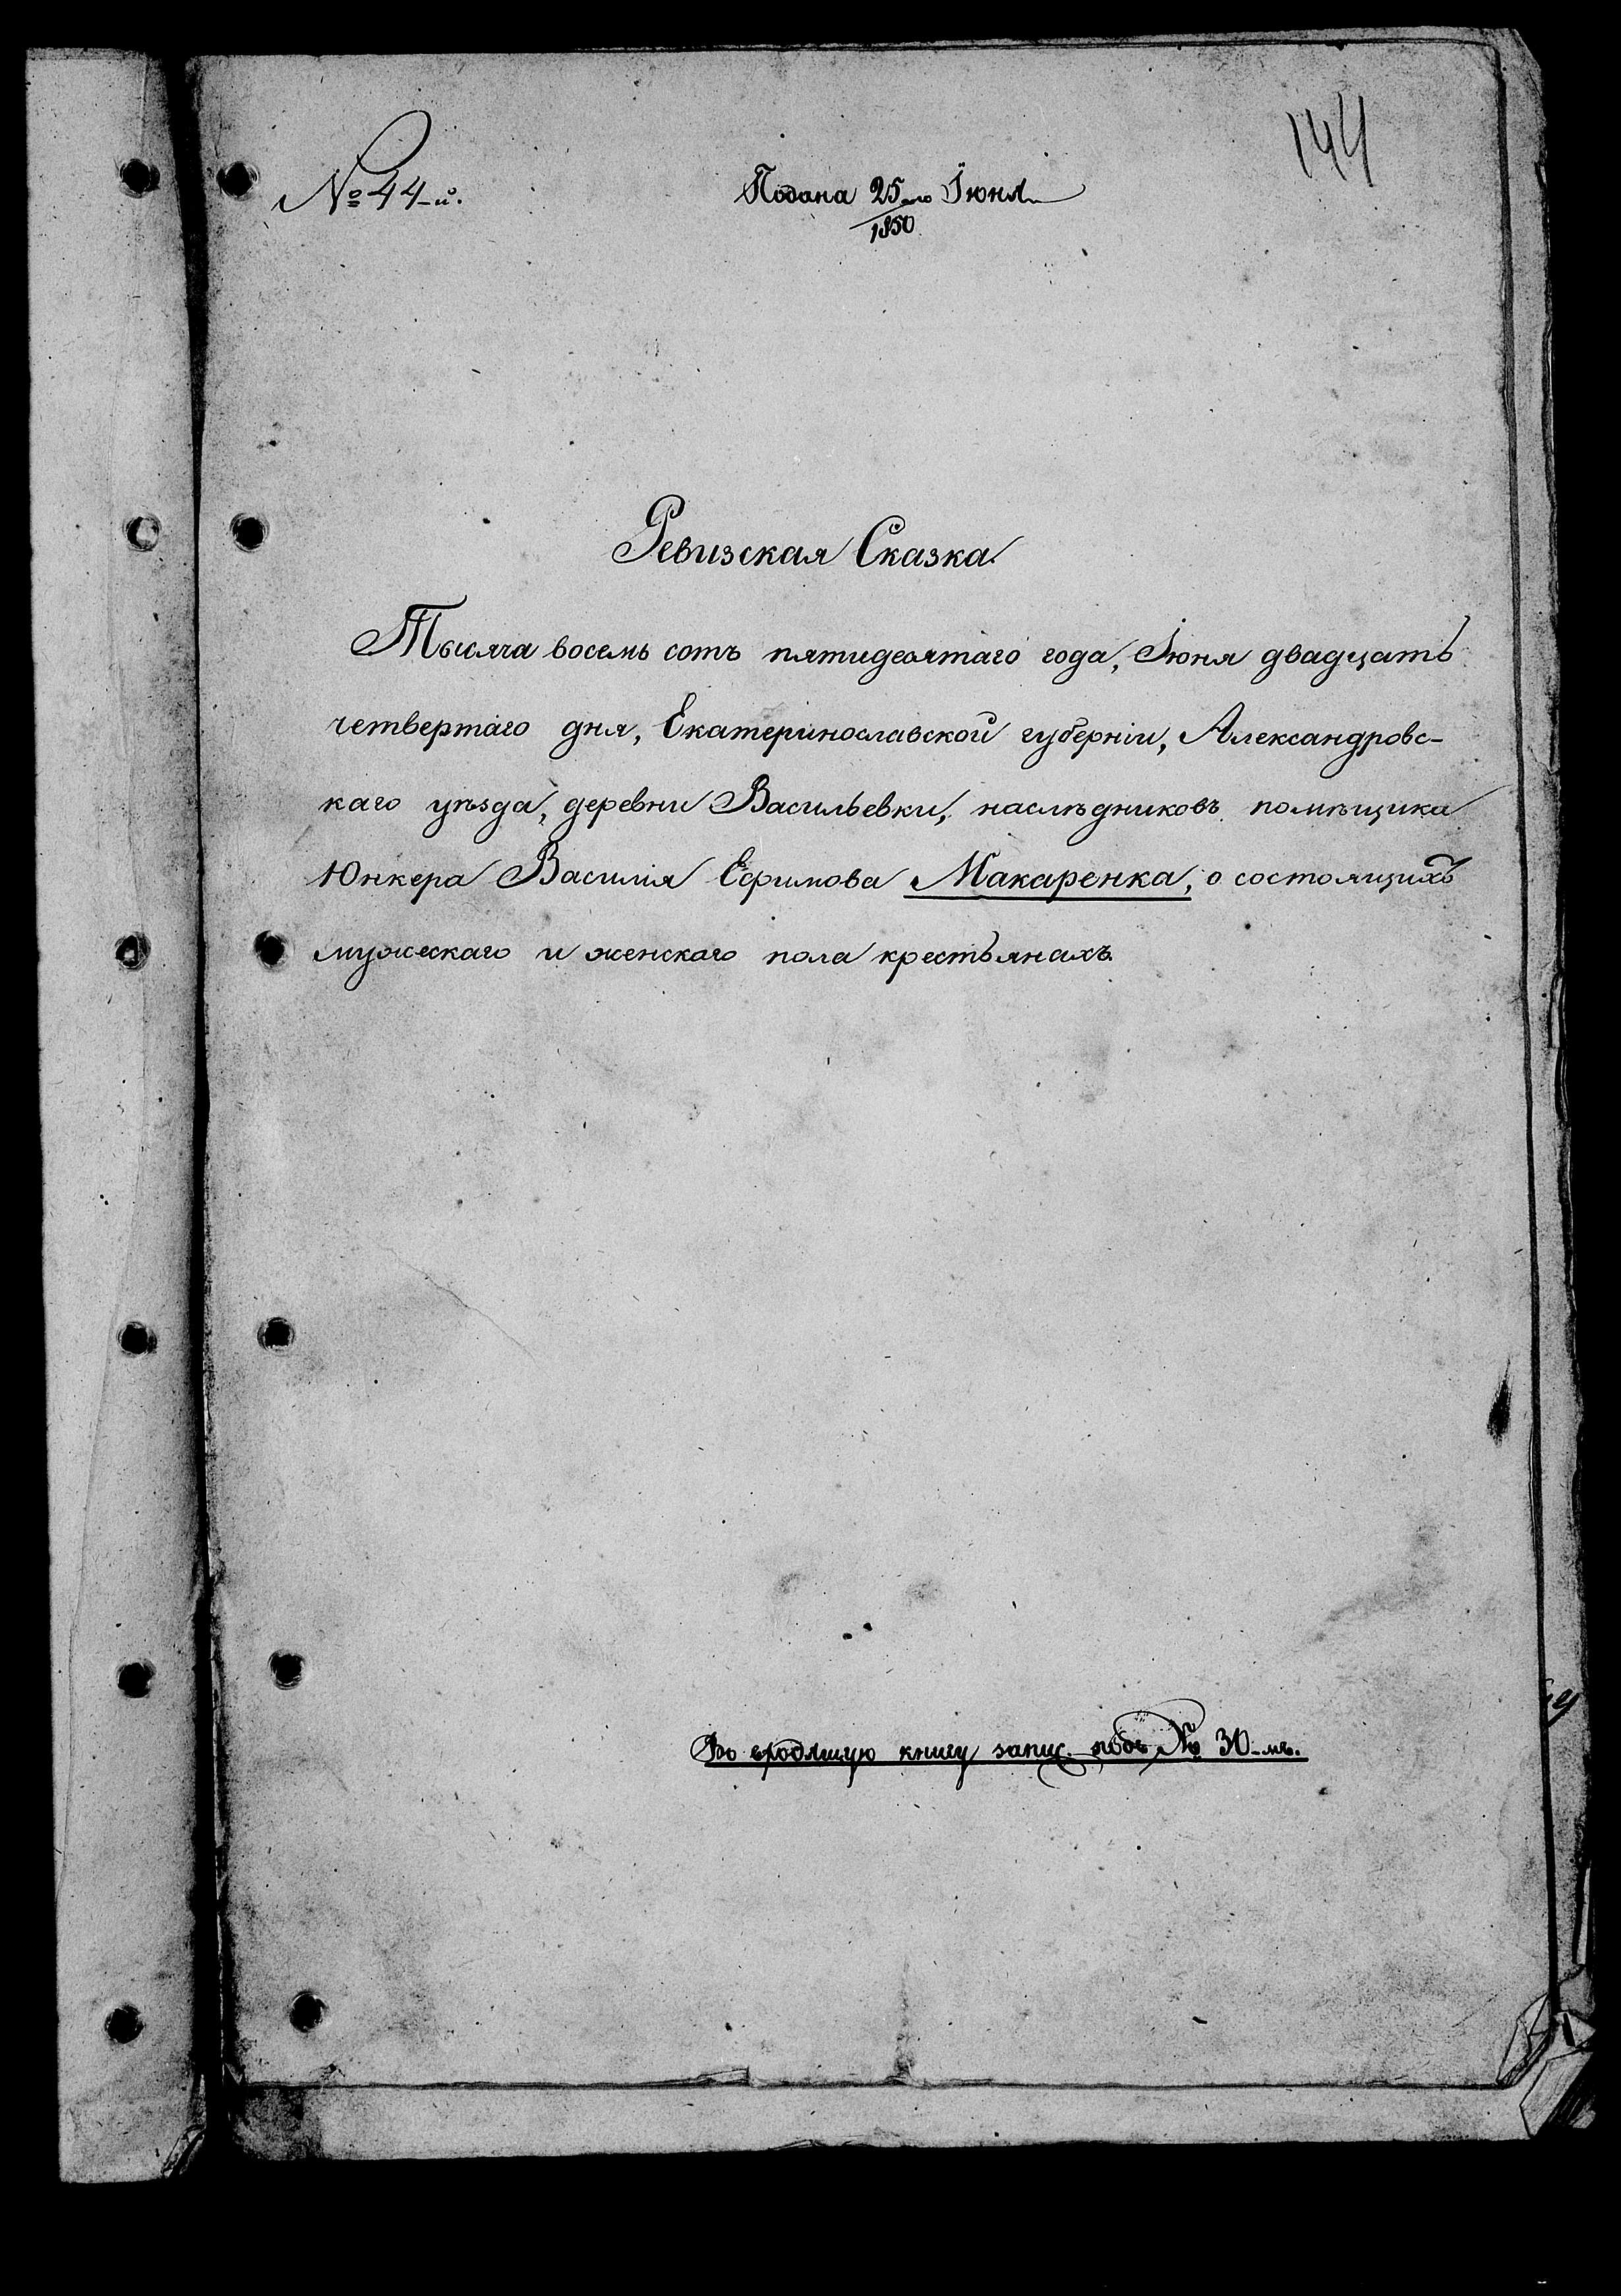 № 44-й.
Подана 25-го Іюня
1850
144
Ревизская Сказка
Тысяча восемь сотъ пятидесятаго года, Іюня двадцать
четвертаго дня, Екатеринославской губерніи, Александровс-
каго уѣзда, деревни Васильевки, наслѣдниковъ помѣщика
Юнкера Василія Ефимова Макаренка, о состоящихъ
мужескаго и женскаго пола крестьянахъ
Во входящую книгу запис. подъ № 30-мъ.